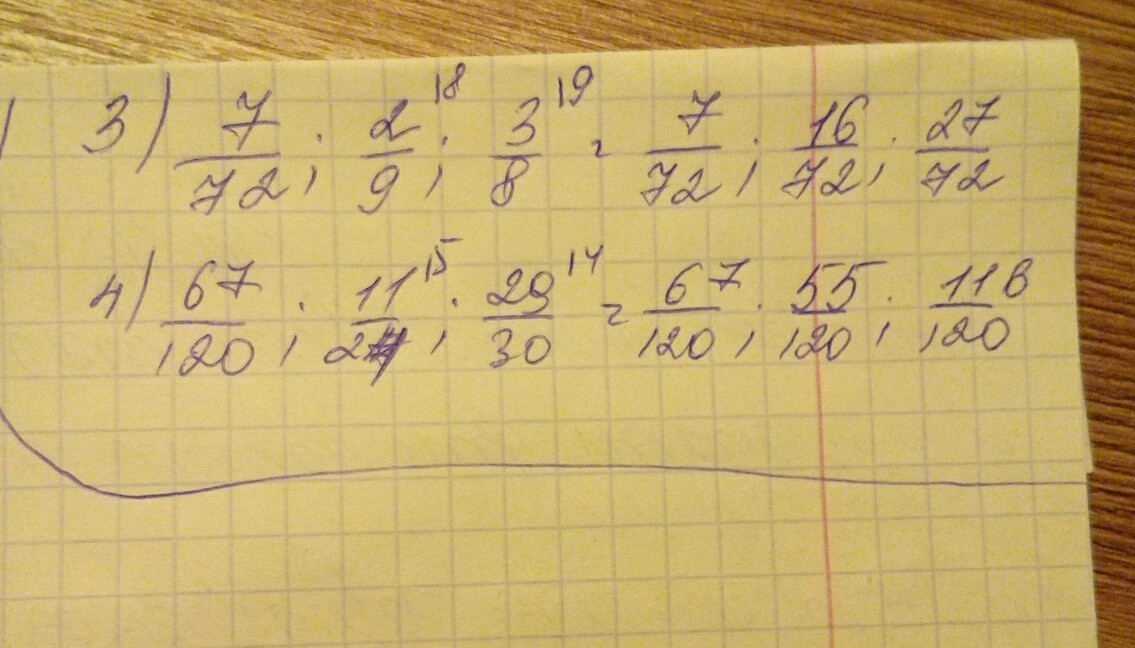 3) 7/72 ; 2/9 |8 ; 3/8 |9 = 7/72 ; 16/72 ; 27/72
4) 67/120 ; 11/24 |5 ; 29/30 |4 = 67/120 ; 55/120 ; 116/120